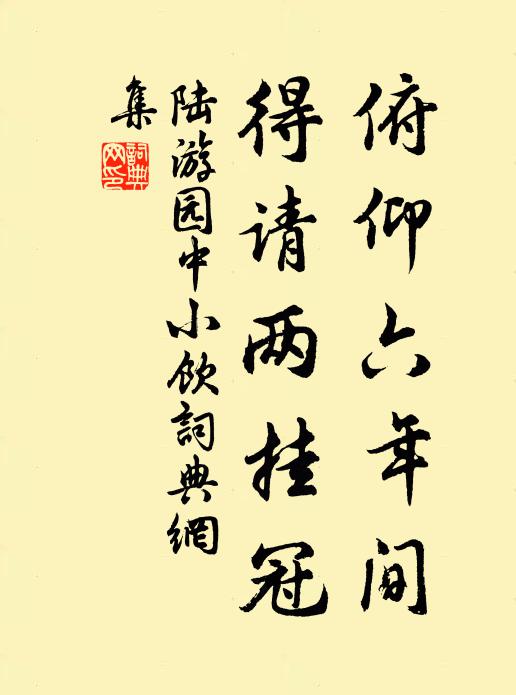 俯仰六年间
得请两挂冠
陆游园中小饮詞典網
集
詞典网印